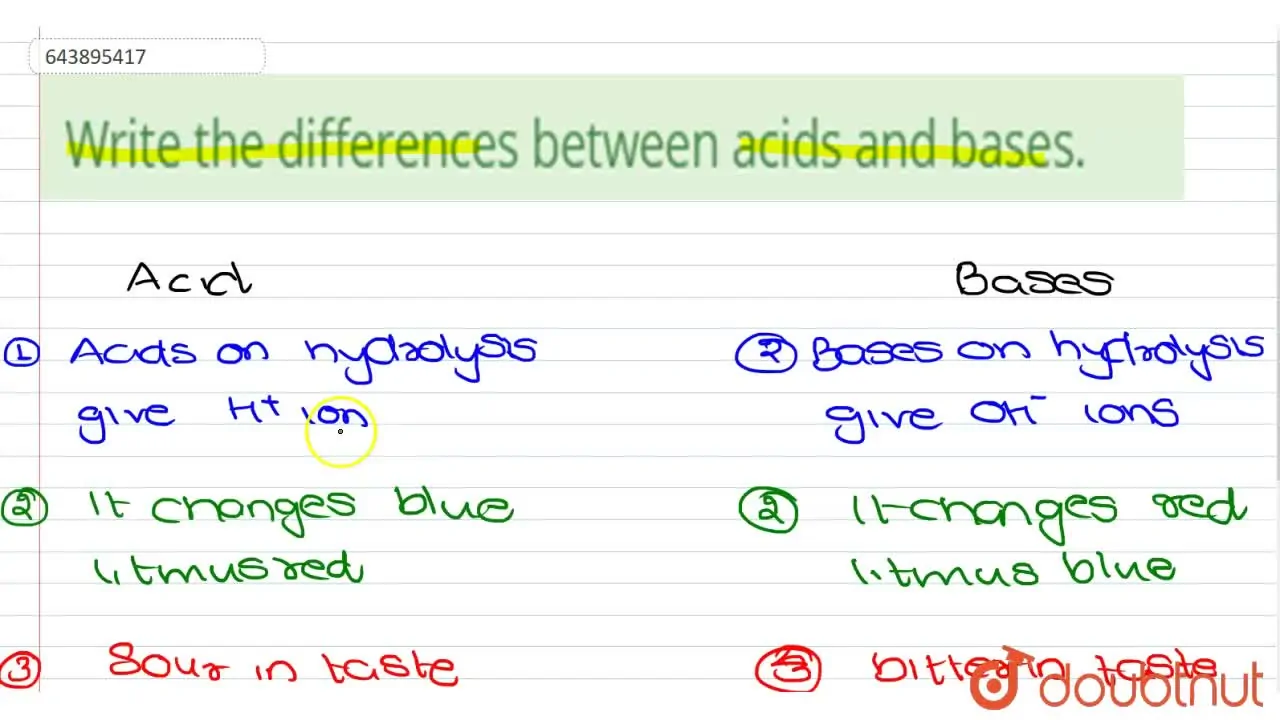 643895417
Write the differences between acids and bases.
Acid
Bases
① Acids on hydrolysis
give H⁺ ion
② Bases on hydrolysis
give OH⁻ ions
② It changes blue
litmus red
② It changes red
litmus blue
③ Sour in taste
③ bitter in taste
doubtnut